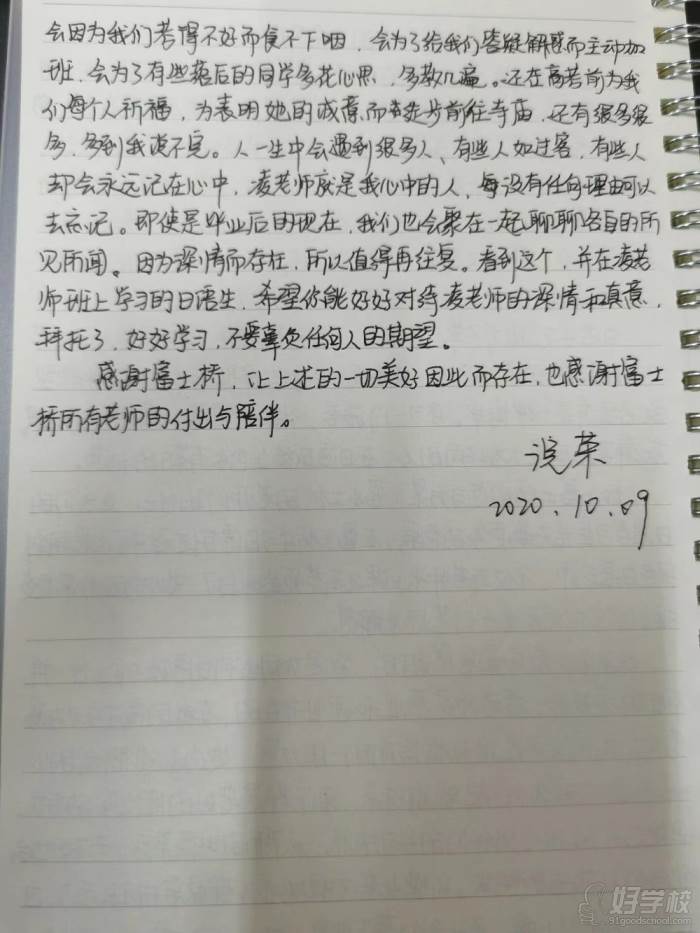 会因为我们考得不好而食不下咽，会为了给我们答疑解惑而主动加
班，会为了有些落后的同学多花心思，多教几遍。还在高考前为我
们每个人祈福，为表明她的诚意而徒步前往寺庙，还有很多很
多，多到我说不完。人一生中会遇到很多人，有些人如过客，有些人
却会永远记在心中，凌老师就是我心中的人，每没有任何理由可以
去忘记。即使是毕业后的现在，我们也会聚在一起聊聊各自的所
见所闻。因为深情而存在，所以值得再往复。看到这个，并在凌老
师班上学习的日语生，希望你能好好对待凌老师的深情和真意，
拜托了，好好学习，不要辜负任何人的期望。
感谢富士桥，让上述的一切美好因此而存在，也感谢富士
桥所有老师的付出与陪伴。
荣
2020.10.09
好学校
91goodschool.com